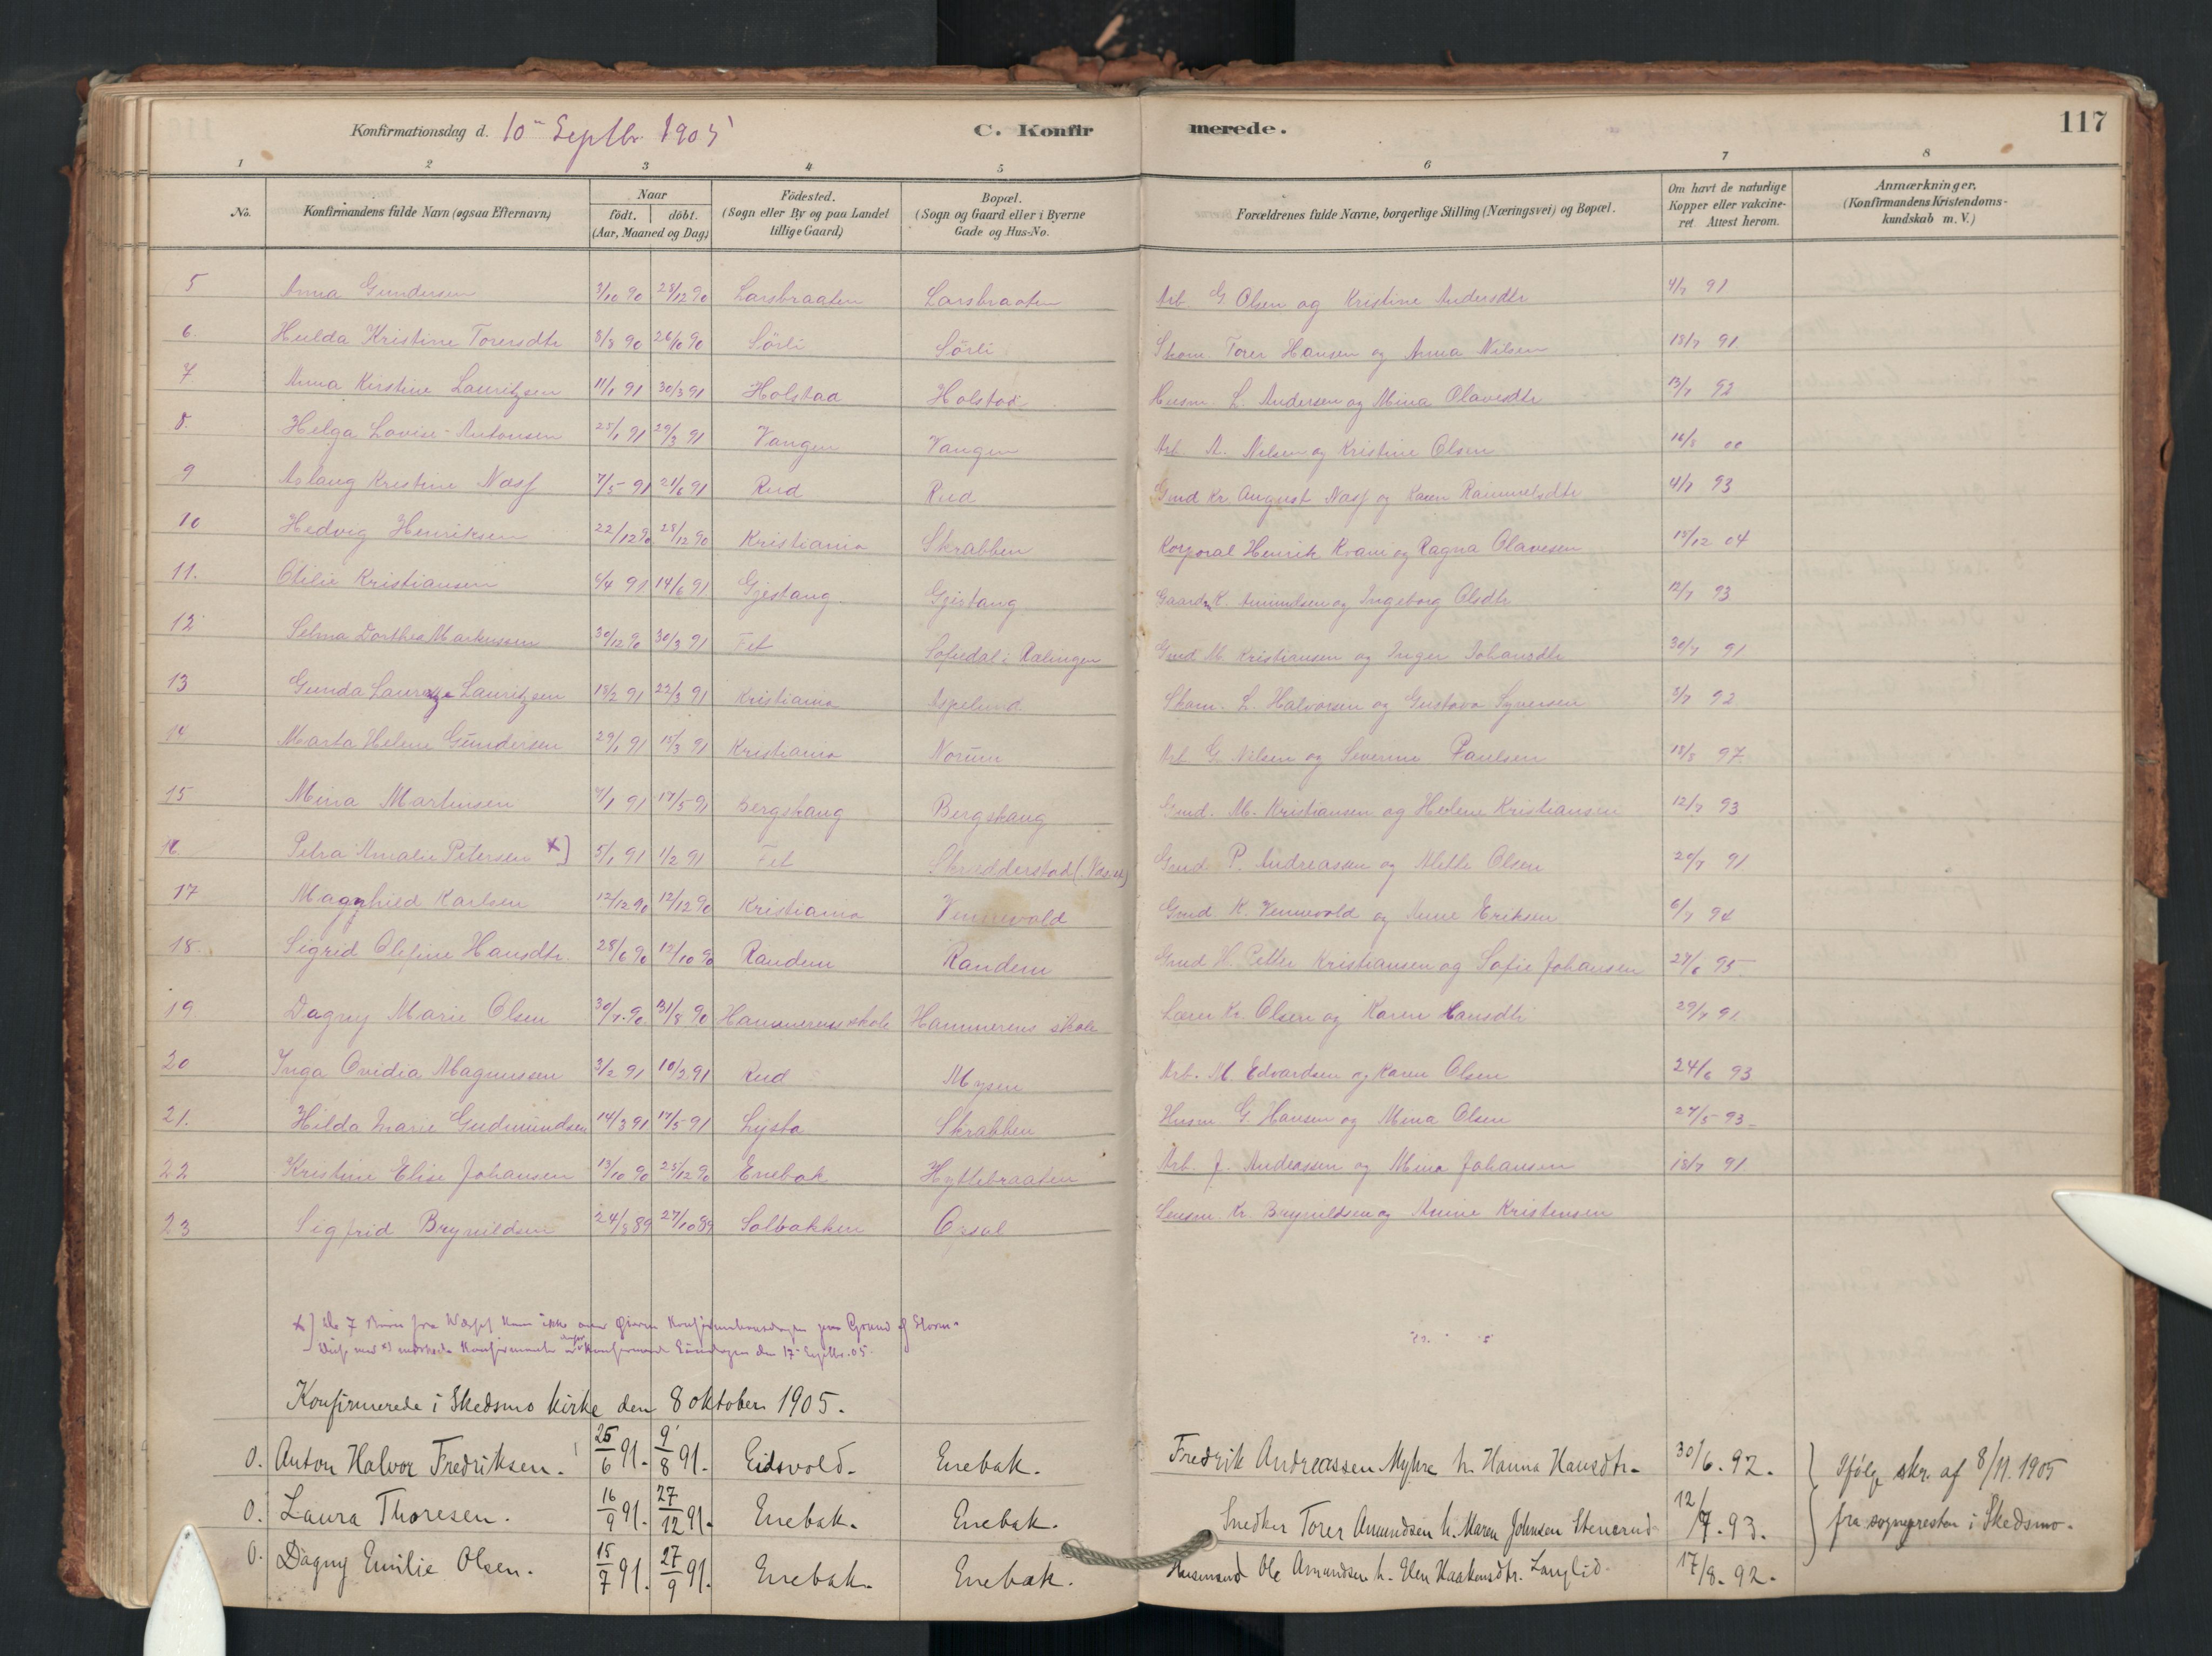 Konfirmationsdag d. 10 Septbr 1905
C. Konfirmerede.
117
1 2 3 4 5 6 7 8
No.
Konfirmandens fulde Navn (ogsaa Efternavn)
Naar
födt. döbt.
(Aar, Maaned og Dag)
Födested.
(Sogn eller By og paa Landet
tillige Gaard)
Bopæl.
(Sogn og Gaard eller i Byerne
Gade og Hus-No.
Forældrenes fulde Navne, borgerlige Stilling (Næringsvei) og Bopæl.
Om havt de naturlige
Kopper eller vakcine-
ret. Attest herom.
Anmærkninger.
(Konfirmandens Kristendoms-
kundskab m. V.)
5 Anna Gundersen 3/10 90 28/12 90 Larsbraaten Larsbraaten Arb G Olsen og Kristine Andersdtr 4/7 91
6. Hulda Kristine Torersdtr 8/8 90 26/10 90 Sörli Sörli Torer Hansen og Anna Nilsen 18/7 91
7 Anna Kirstine Lauritzen 11/1 91 30/3 91 Holstad Holstad Husm. L. Andersen og Mina Olavesdtr 13/7 92
8. Helga Lovise Antonsen 25/1 91 29/3 91 Vangen Vangen Arb A. Nilsen og Kristine Olsen 16/8 00
9 Aslaug Kristine Næss 7/5 91 21/6 91 Rud Rud Gmd Kr. August Næss og Karen 4/7 93
10 Hedvig Henriksen 22/12 90 28/12 90 Kristiania Skrabben Korporal Henrik Kvam og Ragna Olavesen 15/12 04
11. Otilie Kristiansen 6/4 91 14/6 91 Gjestang Gjestang Gaardm K. Amundsen og Ingeborg Olsdtr 12/7 93
12 Selma Dorthea Markussen 30/12 90 30/3 91 Fet Sofiedal i Rælingen Gmd M. Kristiansen og Inger Johansdtr 30/7 91
13 Gunda Lauritzen 18/2 91 22/3 91 Kristiania Aspelund L. Halvorsen og Gustava Syversen 8/7 92
14 Marta Helene Gundersen 29/1 91 15/3 91 Kristiania Norum Arb G Nilsen og Severine Paulsen 18/8 97
15 Mina Martinsen 4/1 91 17/5 91 Bergskaug Bergskaug Gmd. M. Kristiansen og Helene Kristiansen 12/7 93
16. Petra Amalie Petersen x) 5/1 91 1/2 91 Fet Skrædderstad Gmd. P. Andreassen og Mette Olsen 20/7 91
17 Magnhild Karlsen 12/12 90 12/12 90 Kristiania Vennevold Gmd. K. Vennevold og Anne Eriksen 6/7 94
18. Sigrid Olefine Hansdtr. 28/6 90 19/10 90 Randem Randem Gmd H. Petter Kristiansen og Sofie Johansen 27/6 95
19. Dagny Marie Olsen 30/7 90 31/8 90 Hammerens skole Hammerens skole Lærer Kr. Olsen og Karen Hansdtr 29/7 91
20 Inga Ovidia Magnussen 3/2 91 10/2 91 Rud Mysen Arb. M. Edvardsen og Karen Olsen 24/6 93
21. Hilda Marie Gudmundsen 14/3 91 17/5 91 Lysta Skrabben Husm G. Hansen og Mina Olsen 27/5 93
22 Kristine Elise Johansen 13/10 90 25/12 90 Enebak Hyttebraaten Arb. J. Andreassen og Mina Johansen 18/7 91
23 Sigfrid Brynildsen 24/8 89 27/10 89 Solbakken Opsal Kr. Brynildsen og Anne Kristensen
x) De 7 Børn fra kom ikke over Øieren Konfirmationsdagen paa Grund af Storm.
Disse med x) mærkede Konfirmanter Konfirmerede Søndagen den 17 Septbr. 05.
Konfirmerede i Skedsmo kirke den 8 oktober 1905.
0. Anton Halvor Fredriksen. 25/6 91. 9/8 91. Eidsvold. Enebak. Fredrik Andreassen Myhre h. Hanna Hansdtr. 30/6. 92. Ifølge skr. af 8/11. 1905
0. Laura Thoresen. 16/9 91. 27/12 91. Enebak. Enebak. Snedker Torer Amundsen h. Maren Johnsen Stenerud 12/7. 93. fra sognepresten i Skedsmo.
0. Dagny Emilie Olsen. 15/7 91. 27/9 91. Enebak. Enebak. Husmand Ole Amundsen h. Elen Haakensdtr. Langlid. 17/8. 92.